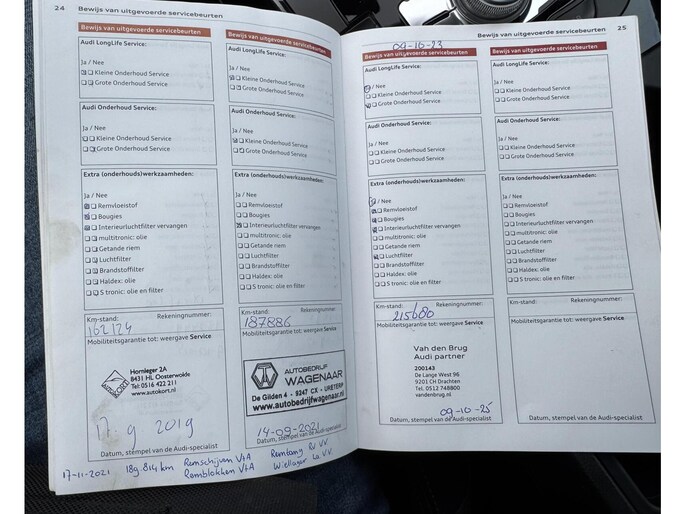 24 Bewijs van uitgevoerde servicebeurten
Bewijs van uitgevoerde servicebeurten
Audi LongLife Service:
Ja / Nee
Kleine Onderhoud Service
Grote Onderhoud Service
Audi Onderhoud Service:
Kleine Onderhoud Service
Grote Onderhoud Service
Extra (onderhouds)werkzaamheden:
Ja / Nee
Remvloeistof
Bougies
Interieurluchtfilter vervangen
multitronic: olie
Getande riem
Luchtfilter
Brandstoffilter
Haldex: olie
S tronic: olie en filter
Km-stand: Rekeningnummer:
162124
Mobiliteitsgarantie tot: weergave Service
Hornleger 2A
8431 HL Oosterwolde
Tel: 0516 422 211
www.autokort.nl
AUTOKORT
17. 9 2019
Datum, stempel van de Audi-specialist
Bewijs van uitgevoerde servicebeurten
Audi LongLife Service:
Ja / Nee
Kleine Onderhoud Service
Grote Onderhoud Service
Audi Onderhoud Service:
Kleine Onderhoud Service
Grote Onderhoud Service
Extra (onderhouds)werkzaamheden:
Ja / Nee
Remvloeistof
Bougies
Interieurluchtfilter vervangen
multitronic: olie
Getande riem
Luchtfilter
Brandstoffilter
Haldex: olie
S tronic: olie en filter
Km-stand: Rekeningnummer:
187886
Mobiliteitsgarantie tot: weergave Service
AUTOBEDRIJF
WAGENAAR
De Gilden 4 - 9247 CX - URETERP
www.autobedrijfwagenaar.nl
14-09-2021
Datum, stempel van de Audi-specialist
17-11-2021 189.814 km Remschijven V+A Remtang RV VV
Remblokken V+A Wiellager LA V.V.
Bewijs van uitgevoerde servicebeurten 25
09-10-23
Bewijs van uitgevoerde servicebeurten
Audi LongLife Service:
Ja / Nee
Kleine Onderhoud Service
Grote Onderhoud Service
Audi Onderhoud Service:
Kleine Onderhoud Service
Grote Onderhoud Service
Extra (onderhouds)werkzaamheden:
Ja / Nee
Remvloeistof
Bougies
Interieurluchtfilter vervangen
multitronic: olie
Getande riem
Luchtfilter
Brandstoffilter
Haldex: olie
S tronic: olie en filter
Km-stand: Rekeningnummer:
215680
Mobiliteitsgarantie tot: weergave Service
Van den Brug
Audi partner
200143
De Lange West 96
9201 CH Drachten
Tel. 0512 748800
vandenbrug.nl
09-10-25
Datum, stempel van de Audi-specialist
Bewijs van uitgevoerde servicebeurten
Audi LongLife Service:
Ja / Nee
Kleine Onderhoud Service
Grote Onderhoud Service
Audi Onderhoud Service:
Kleine Onderhoud Service
Grote Onderhoud Service
Extra (onderhouds)werkzaamheden:
Ja / Nee
Remvloeistof
Bougies
Interieurluchtfilter vervangen
multitronic: olie
Getande riem
Luchtfilter
Brandstoffilter
Haldex: olie
S tronic: olie en filter
Km-stand: Rekeningnummer:
Mobiliteitsgarantie tot: weergave Service
Datum, stempel van de Audi-specialist